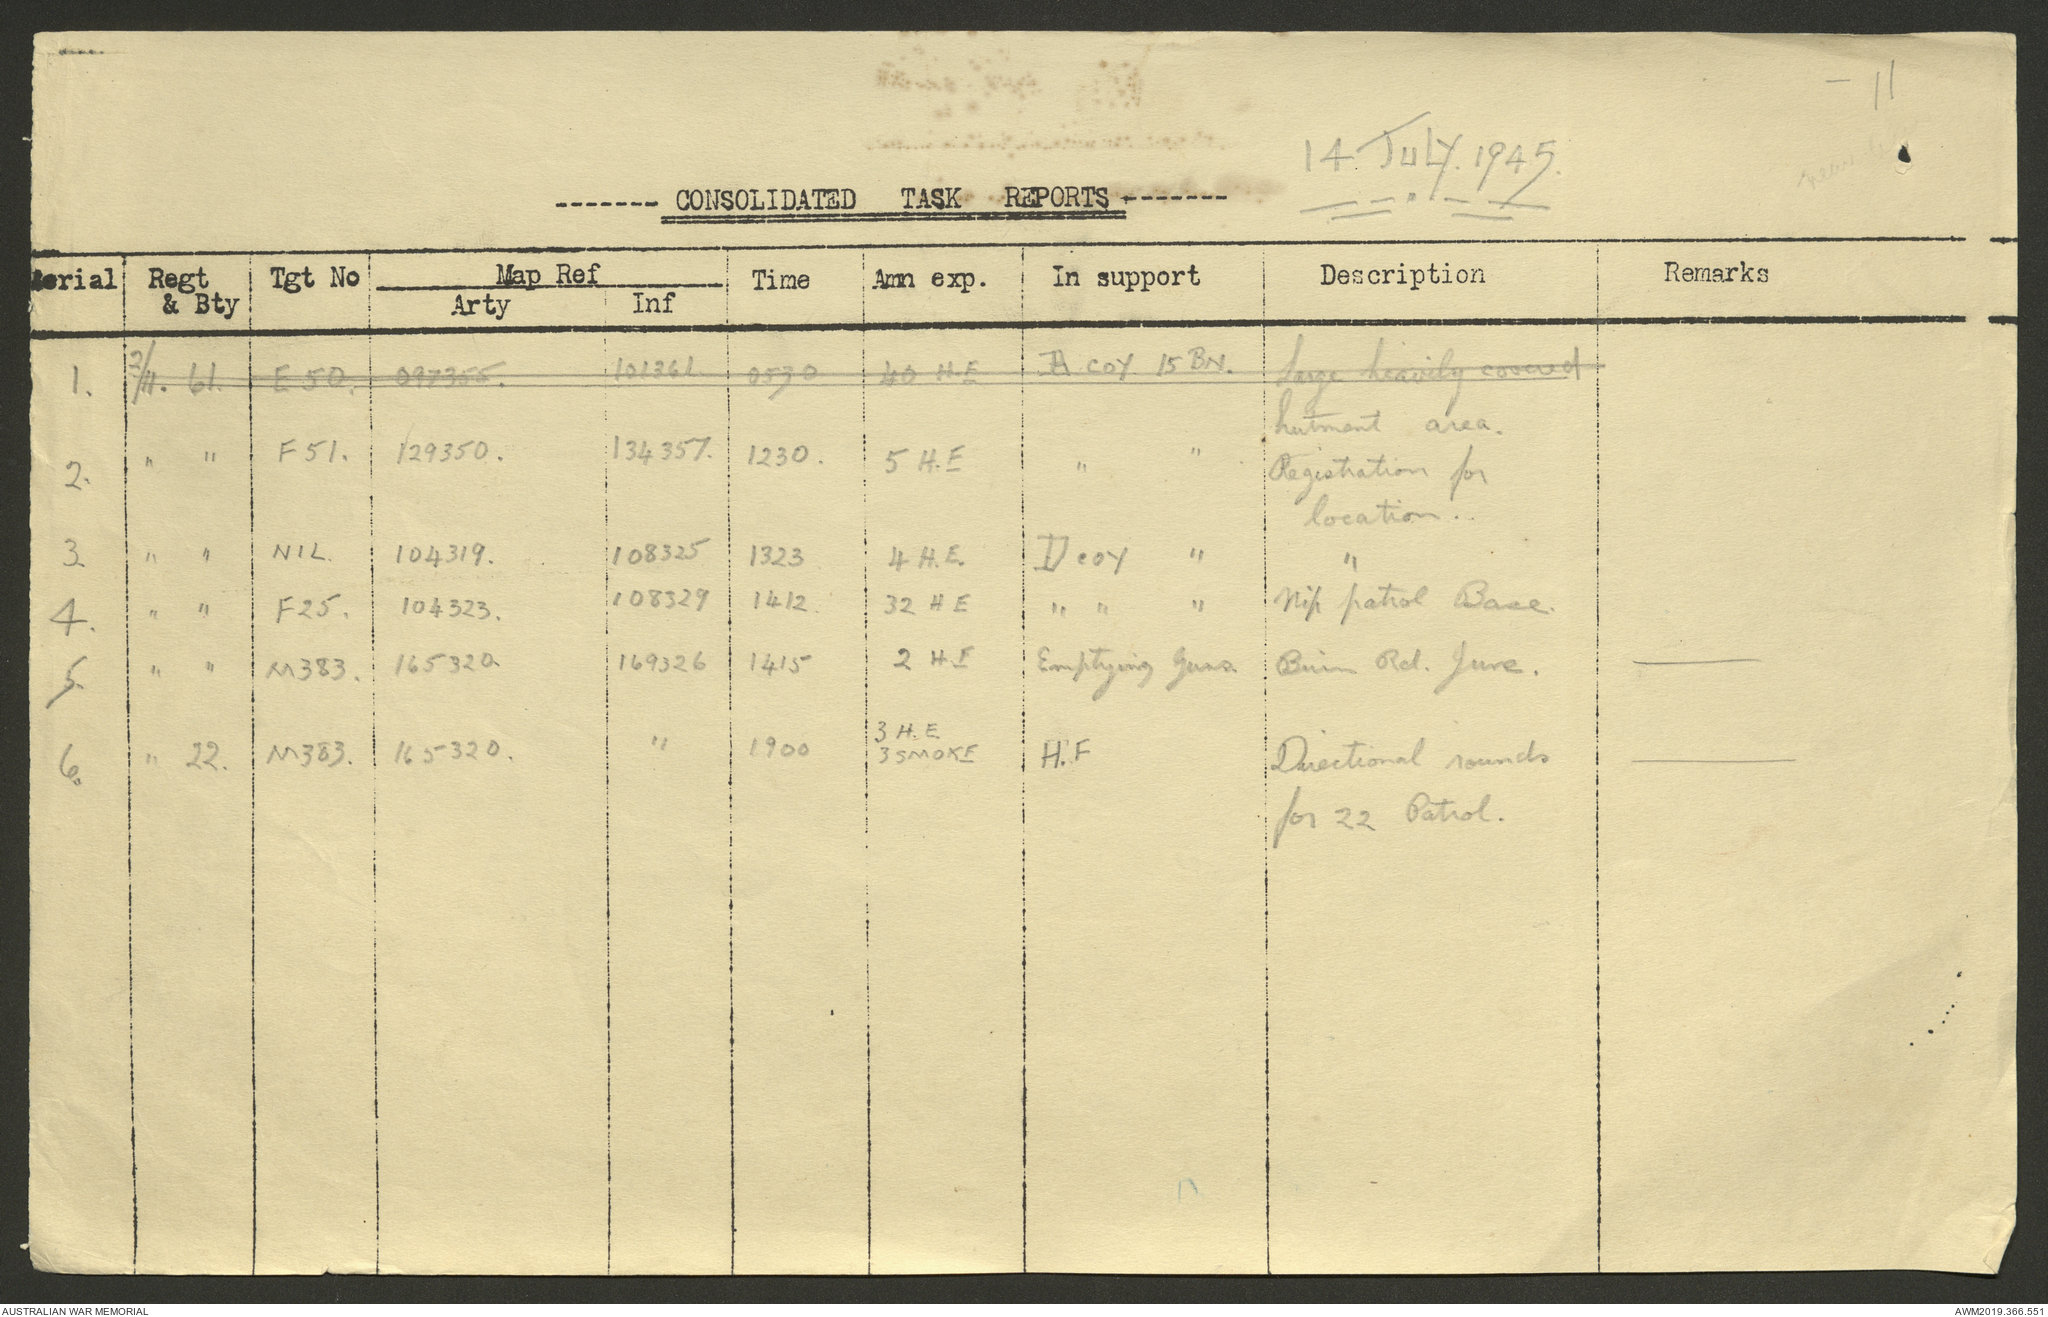 - 11
14 JULY. 1945.
------- CONSOLIDATED TASK REPORTS -------
Serial Regt & Bty Tgt No Map Ref Arty Inf Time Amn exp. In support Description Remarks
1. 2/11. 61. E 50. 097355. 101361. 0530 40 H.E A COY 15 BN. Large heavily covered
hutment area.
2. " " F 51. 129350. 134357. 1230. 5 H.E " " Registration for
location.
3. " " NIL. 104319. 108325 1323 4 H.E. D COY " "
4. " " F25. 104323. 108329 1412. 32 H E " " " Nip patrol Base.
5. " " M383. 165320. 169326 1415 2 H.E Emptying Guns. Buin Rd. Junc.
6. " 22. M383. 165320. " 1900 3 H.E 3 SMOKE H.F Directional rounds
for 22 Patrol.
AUSTRALIAN WAR MEMORIAL
AWM2019.366.551